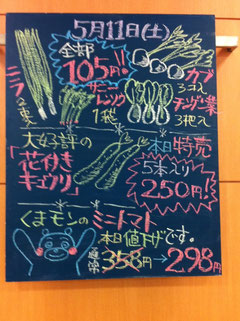 5月11日(土)
全部
105円!!
ニラ
2束
サニー
レタス
1袋
カブ
3コ入
チンゲン菜
3把入
大好評の
「花付き
キュウリ」
本日特売
5本入り
250円!
くまモンのミニトマト
本日値下げです。
通常
358円→298円